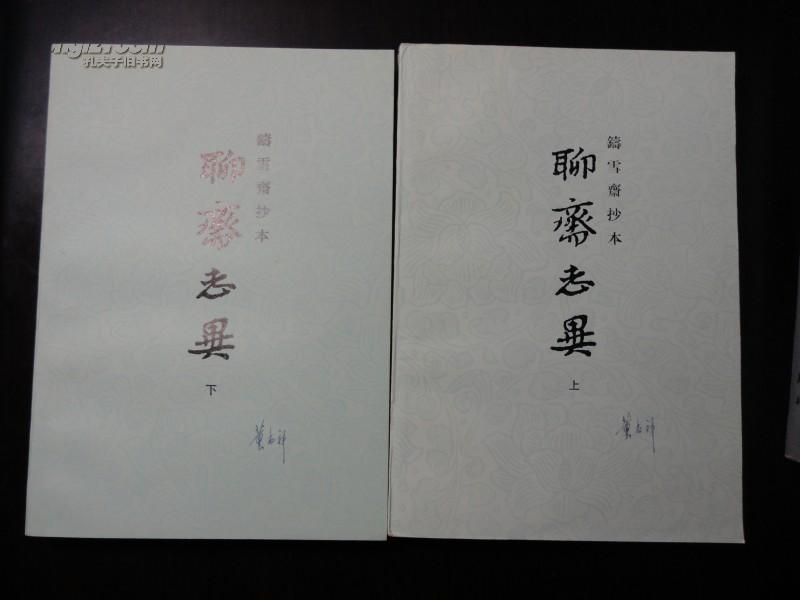 孔夫子旧书网
鑄雪齋抄本
聊齋志異
下
鑄雪齋抄本
聊齋志異
上